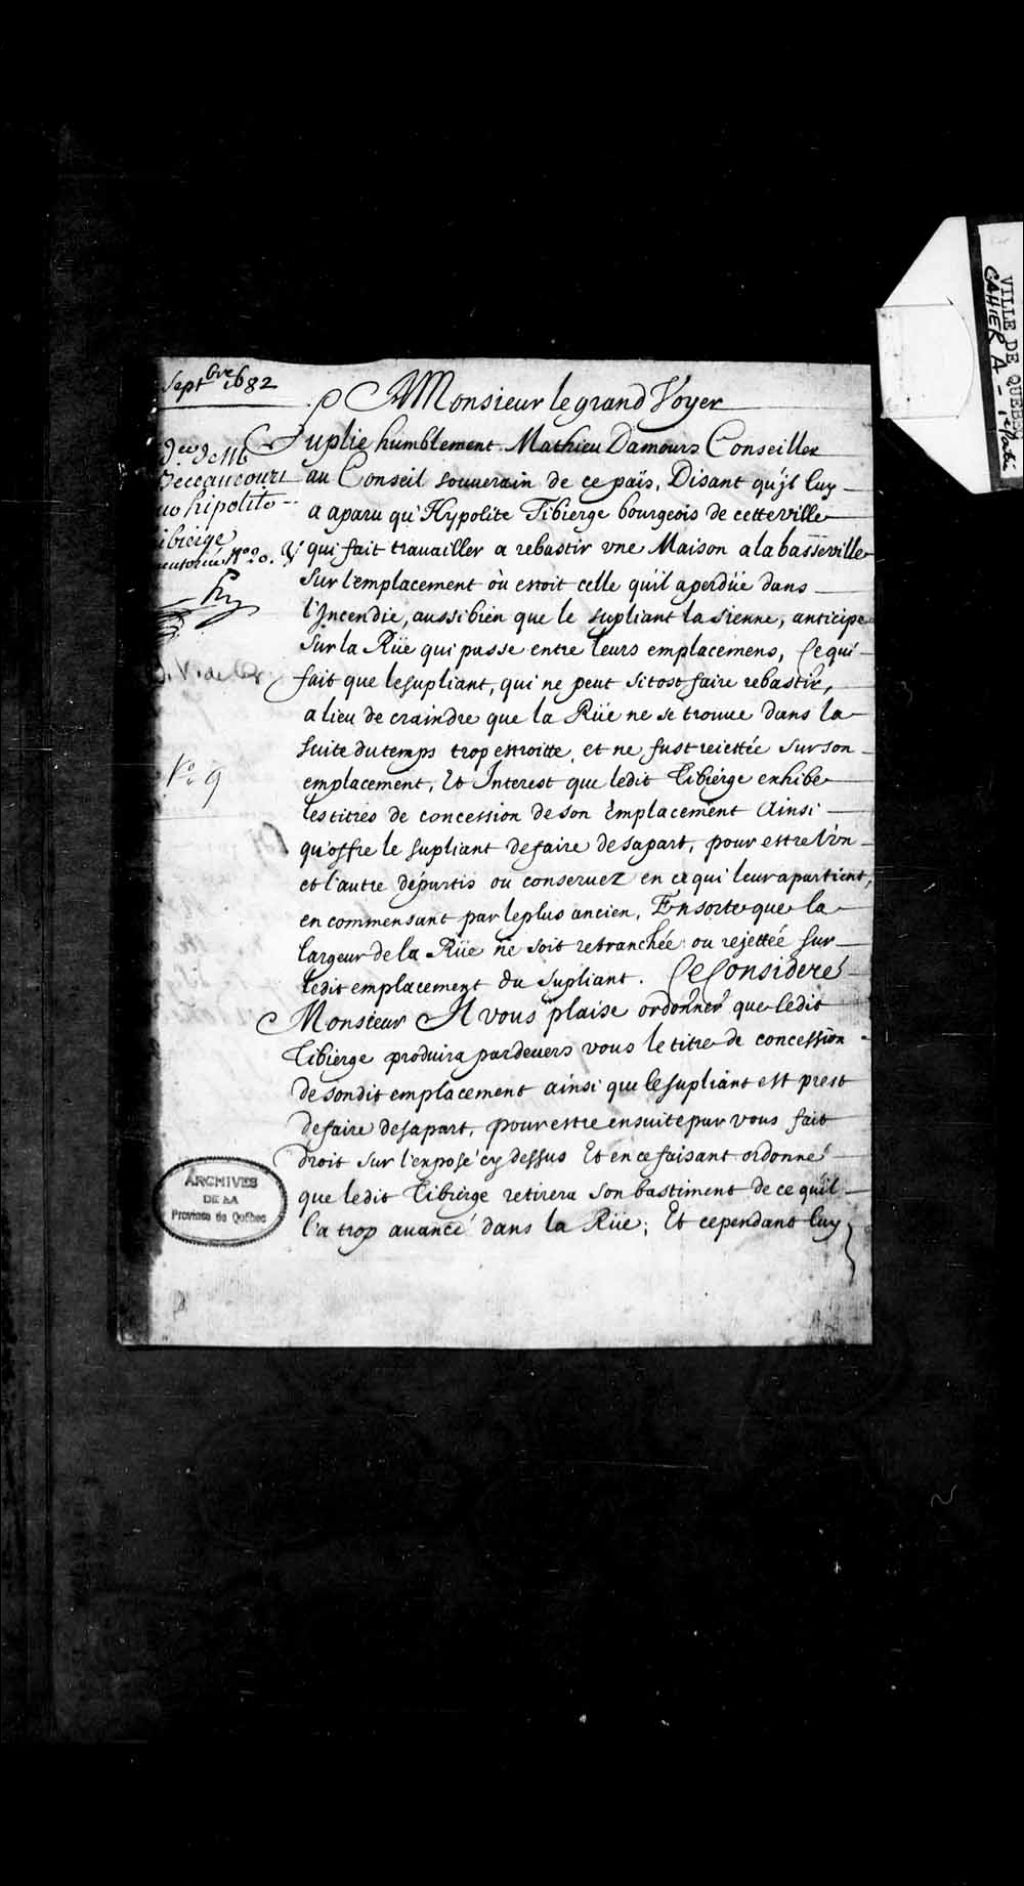 Septbre 1682
A Monsieur le grand Voyer
Suplie humblement Mathieu Damours Conseiller
au Conseil souuerain de ce païs, Disant qu'jl luy
a aparu qu'Hypolite Tibierge bourgeois de cette ville
qui fait trauailler a rebastir vne Maison a la basseville
Sur l'emplacement où estoit celle quil a perdüe dans
l'Jncendie, aussi bien que le supliant la sienne, anticipe
Sur la Rüe qui passe entre leurs emplacemens, Ce qui
fait que le supliant, qui ne peut sitost faire rebastir,
a lieu de craindre que la Rüe ne se trouue dans la
suite du temps trop estroitte, et ne fust reiettée sur son
emplacement, Et Interest que ledit Tibierge exhibe
les titres de concession de son Emplacement Ainsi
qu'offre le supliant de faire de sa part, pour estre l'vn
et l'autre départis ou conseruez en ce qui leur apartient,
en commensant par le plus ancien, En sorte que la
largeur de la Rüe ne soit retranchée ou rejettée sur
ledit emplacement du supliant. Ce Consideré
Monsieur Il vous plaise ordonner que ledit
Tibierge produira pardeuers vous le titre de concession
de sondit emplacement ainsi que le supliant est prest
de faire de sa part, pour estre ensuite par vous fait
droit sur l'exposé cy dessus Et en ce faisant ordonné
que ledit Tibierge retirera son bastiment de ce quil
l'a trop auancé dans la Rüe; Et cependant luy
de Mr
Beccancourt
hipolite
ibierge
No 20.
No 9
ARCHIVES
DE LA
Province de Québec
VILLE DE QUEBEC
CAHIER A -